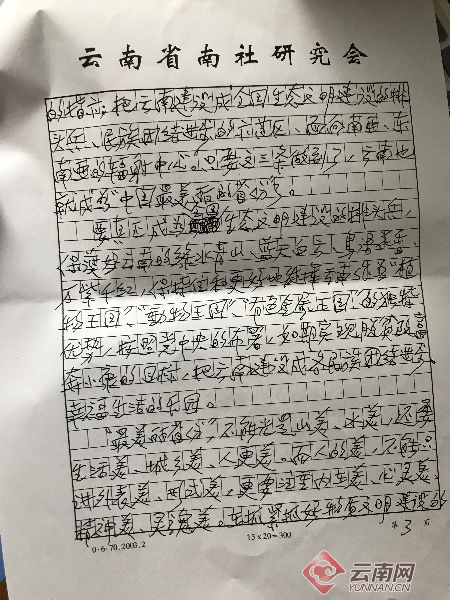 云南省南社研究会
的指示,把云南建设成全国生态文明建设的排
头兵、民族团结进步的示范区、面向南亚、东
南亚的辐射中心。只要这三条做到了,云南也
就成为"中国最美丽的省份"了。
要真正成为全国生态文明建设的排头兵,
保护好云南的绿水青山、蓝天白云、鸟语花香、
万紫千红,保持和更好地维护云南作为"植
物王国"、"動物王国"、"有色金属王国"的独特
优势,按照党中央的部署,如期实现脱贫致富
奔小康的目标,把云南建设成各民族团结进步、
幸福生活的乐园。
"最美丽省份",不能光是山美、水美,还要
生活美、城乡美、人更美。而人的美,不能只
讲外表美、形式美,更要注重内在美、心灵美、
精神美、灵魂美。在抓紧抓好物质文明建设的
0·6·70.2003.2
15×20=300
第 3 页
云南网
YUNNAN.CN